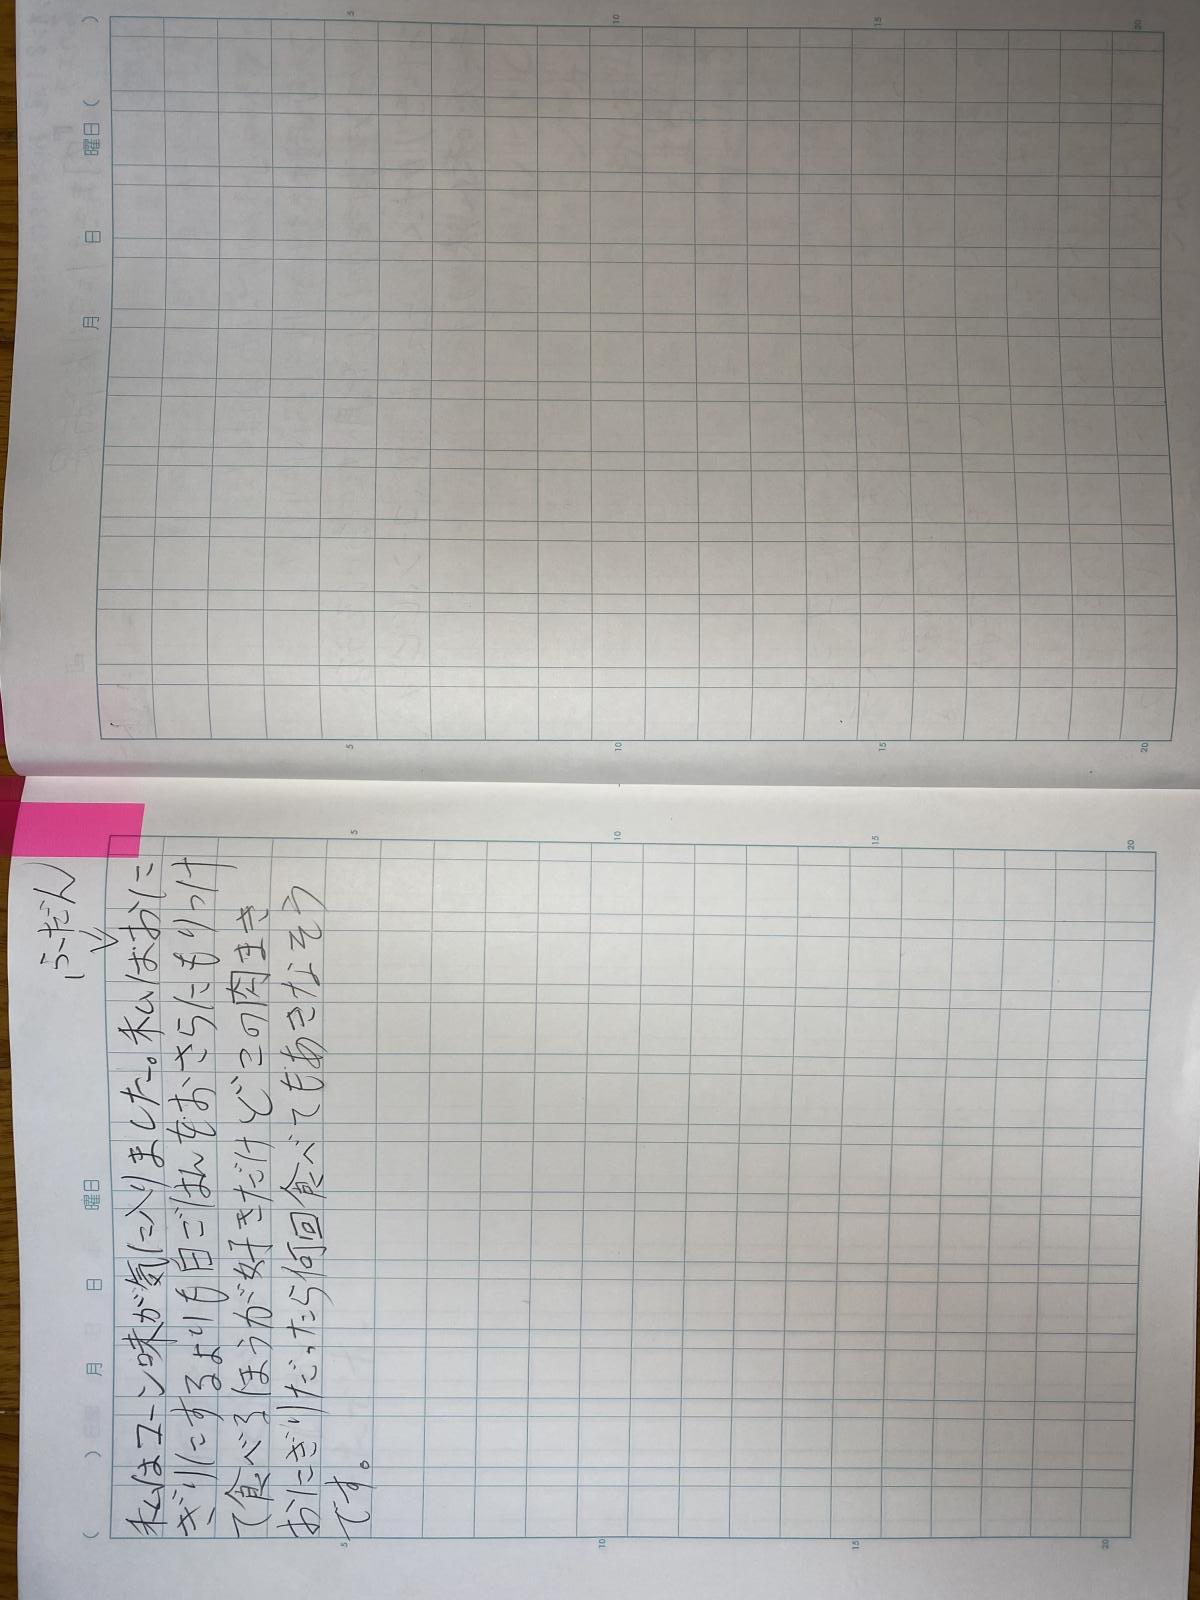 ふだん
私はコーン味が気に入りました。私はおに
ぎりにするよりも白ごはんをおさらにもりつけ
て食べるほうが好きだけどこの肉まき
おにぎりだったら何回食べてもあきなそう
です。
( ) 月 日 曜日
5
10
15
20
5
10
15
20
月 日 曜日 ( )
5
10
15
20
5
10
15
20